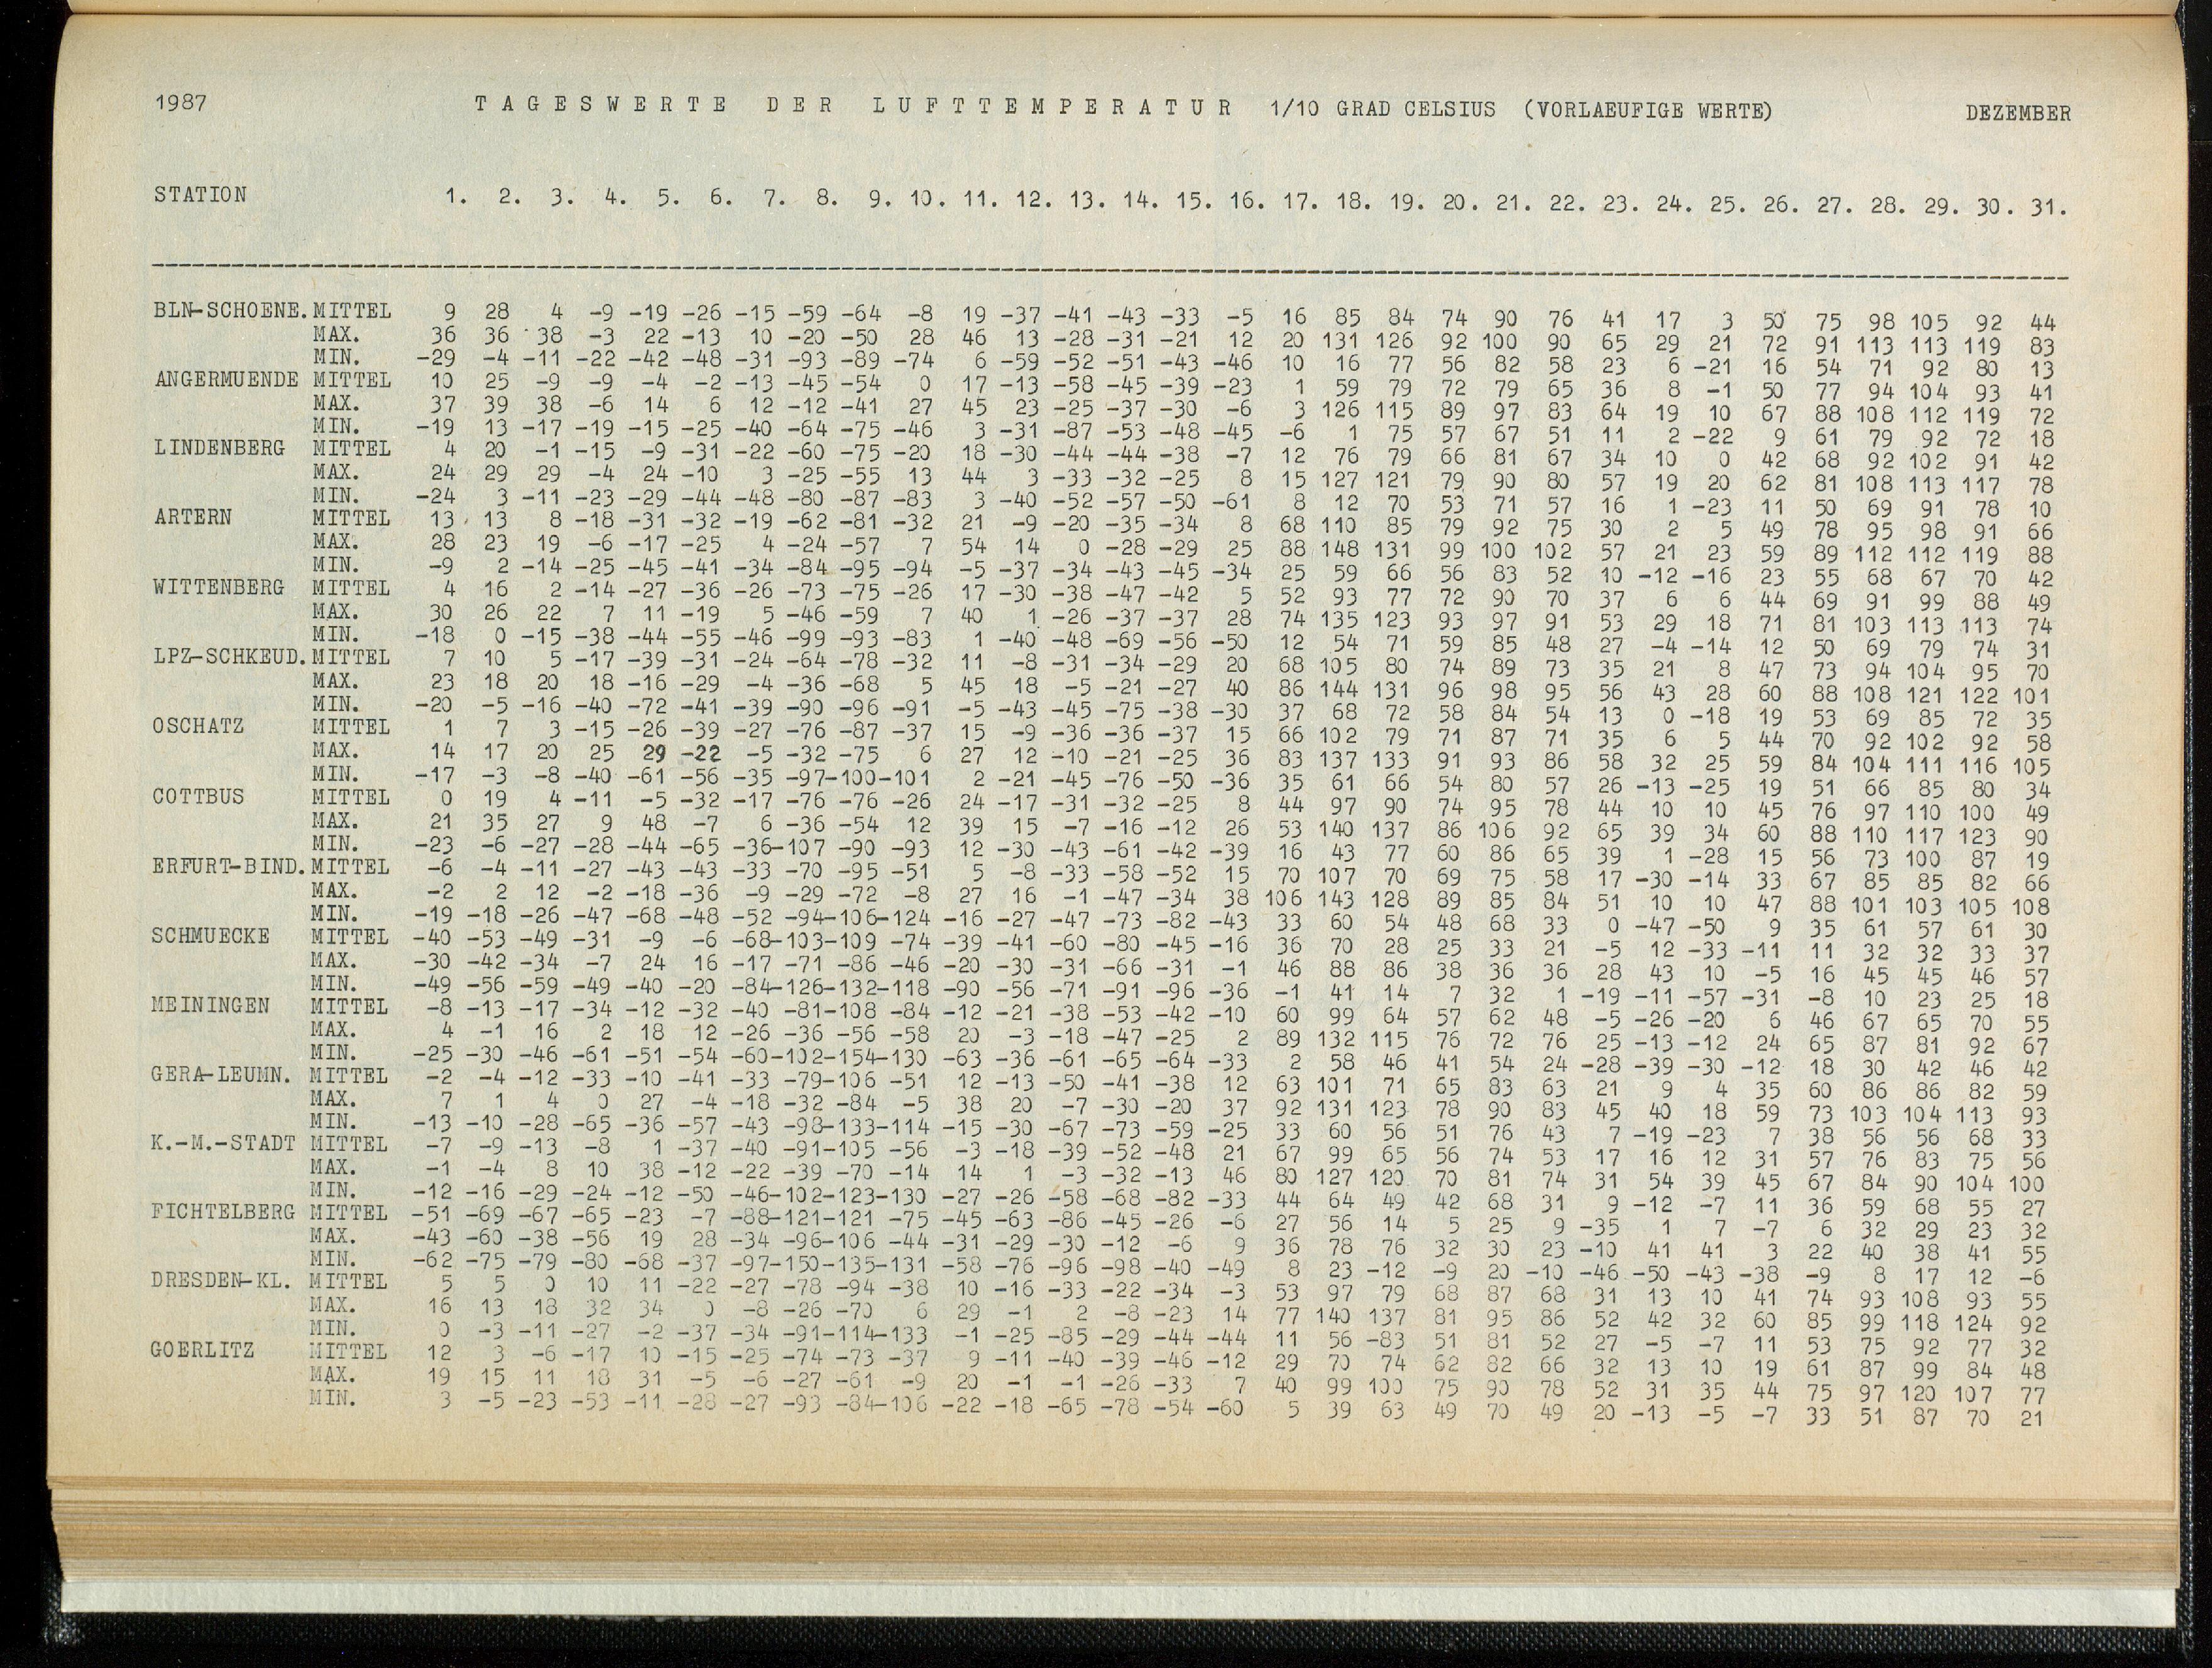 1987 TAGESWERTE DER LUFTTEMPERATUR 1/10 GRAD CELSIUS (VORLAEUFIGE WERTE) DEZEMBER
STATION 1. 2. 3. 4. 5. 6. 7. 8. 9. 10. 11. 12. 13. 14. 15. 16. 17. 18. 19. 20. 21. 22. 23. 24. 25. 26. 27. 28. 29. 30. 31.
BLN-SCHOENE. MITTEL 9 28 4 -9 -19 -26 -15 -59 -64 -8 19 -37 -41 -43 -33 -5 16 85 84 74 90 76 41 17 3 50 75 98 105 92 44
MAX. 36 36 38 -3 22 -13 10 -20 -50 28 46 13 -28 -31 -21 12 20 131 126 92 100 90 65 29 21 72 91 113 113 119 83
MIN. -29 -4 -11 -22 -42 -48 -31 -93 -89 -74 6 -59 -52 -51 -43 -46 10 16 77 56 82 58 23 6 -21 16 54 71 92 80 13
ANGERMUENDE MITTEL 10 25 -9 -9 -4 -2 -13 -45 -54 0 17 -13 -58 -45 -39 -23 1 59 79 72 79 65 36 8 -1 50 77 94 104 93 41
MAX. 37 39 38 -6 14 6 12 -12 -41 27 45 23 -25 -37 -30 -6 3 126 115 89 97 83 64 19 10 67 88 108 112 119 72
MIN. -19 13 -17 -19 -15 -25 -40 -64 -75 -46 3 -31 -87 -53 -48 -45 -6 1 75 57 67 51 11 2 -22 9 61 79 92 72 18
LINDENBERG MITTEL 4 20 -1 -15 -9 -31 -22 -60 -75 -20 18 -30 -44 -44 -38 -7 12 76 79 66 81 67 34 10 0 42 68 92 102 91 42
MAX. 24 29 29 -4 24 -10 3 -25 -55 13 44 3 -33 -32 -25 8 15 127 121 79 90 80 57 19 20 62 81 108 113 117 78
MIN. -24 3 -11 -23 -29 -44 -48 -80 -87 -83 3 -40 -52 -57 -50 -61 8 12 70 53 71 57 16 1 -23 11 50 69 91 78 10
ARTERN MITTEL 13 13 8 -18 -31 -32 -19 -62 -81 -32 21 -9 -20 -35 -34 8 68 110 85 79 92 75 30 2 5 49 78 95 98 91 66
MAX. 28 23 19 -6 -17 -25 4 -24 -57 7 54 14 0 -28 -29 25 88 148 131 99 100 102 57 21 23 59 89 112 112 119 88
MIN. -9 2 -14 -25 -45 -41 -34 -84 -95 -94 -5 -37 -34 -43 -45 -34 25 59 66 56 83 52 10 -12 -16 23 55 68 67 70 42
WITTENBERG MITTEL 4 16 2 -14 -27 -36 -26 -73 -75 -26 17 -30 -38 -47 -42 5 52 93 77 72 90 70 37 6 6 44 69 91 99 88 49
MAX. 30 26 22 7 11 -19 5 -46 -59 7 40 1 -26 -37 -37 28 74 135 123 93 97 91 53 29 18 71 81 103 113 113 74
MIN. -18 0 -15 -38 -44 -55 -46 -99 -93 -83 1 -40 -48 -69 -56 -50 12 54 71 59 85 48 27 -4 -14 12 50 69 79 74 31
LPZ-SCHKEUD. MITTEL 7 10 5 -17 -39 -31 -24 -64 -78 -32 11 -8 -31 -34 -29 20 68 105 80 74 89 73 35 21 8 47 73 94 104 95 70
MAX. 23 18 20 18 -16 -29 -4 -36 -68 5 45 18 -5 -21 -27 40 86 144 131 96 98 95 56 43 28 60 88 108 121 122 101
MIN. -20 -5 -16 -40 -72 -41 -39 -90 -96 -91 -5 -43 -45 -75 -38 -30 37 68 72 58 84 54 13 0 -18 19 53 69 85 72 35
OSCHATZ MITTEL 1 7 3 -15 -26 -39 -27 -76 -87 -37 15 -9 -36 -36 -37 15 66 102 79 71 87 71 35 6 5 44 70 92 102 92 58
MAX. 14 17 20 25 29 -22 -5 -32 -75 6 27 12 -10 -21 -25 36 83 137 133 91 93 86 58 32 25 59 84 104 111 116 105
MIN. -17 -3 -8 -40 -61 -56 -35 -97-100-101 2 -21 -45 -76 -50 -36 35 61 66 54 80 57 26 -13 -25 19 51 66 85 80 34
COTTBUS MITTEL 0 19 4 -11 -5 -32 -17 -76 -76 -26 24 -17 -31 -32 -25 8 44 97 90 74 95 78 44 10 10 45 76 97 110 100 49
MAX. 21 35 27 9 48 -7 6 -36 -54 12 39 15 -7 -16 -12 26 53 140 137 86 106 92 65 39 34 60 88 110 117 123 90
MIN. -23 -6 -27 -28 -44 -65 -36-107 -90 -93 12 -30 -43 -61 -42 -39 16 43 77 60 86 65 39 1 -28 15 56 73 100 87 19
ERFURT-BIND. MITTEL -6 -4 -11 -27 -43 -43 -33 -70 -95 -51 5 -8 -33 -58 -52 15 70 107 70 69 75 58 17 -30 -14 33 67 85 85 82 66
MAX. -2 2 12 -2 -18 -36 -9 -29 -72 -8 27 16 -1 -47 -34 38 106 143 128 89 85 84 51 10 10 47 88 101 103 105 108
MIN. -19 -18 -26 -47 -68 -48 -52 -94-106-124 -16 -27 -47 -73 -82 -43 33 60 54 48 68 33 0 -47 -50 9 35 61 57 61 30
SCHMUECKE MITTEL -40 -53 -49 -31 -9 -6 -68-103-109 -74 -39 -41 -60 -80 -45 -16 36 70 28 25 33 21 -5 12 -33 -11 11 32 32 33 37
MAX. -30 -42 -34 -7 24 16 -17 -71 -86 -46 -20 -30 -31 -66 -31 -1 46 88 86 38 36 36 28 43 10 -5 16 45 45 46 57
MIN. -49 -56 -59 -49 -40 -20 -84-126-132-118 -90 -56 -71 -91 -96 -36 -1 41 14 7 32 1 -19 -11 -57 -31 -8 10 23 25 18
MEININGEN MITTEL -8 -13 -17 -34 -12 -32 -40 -81-108 -84 -12 -21 -38 -53 -42 -10 60 99 64 57 62 48 -5 -26 -20 6 46 67 65 70 55
MAX. 4 -1 16 2 18 12 -26 -36 -56 -58 20 -3 -18 -47 -25 2 89 132 115 76 72 76 25 -13 -12 24 65 87 81 92 67
MIN. -25 -30 -46 -61 -51 -54 -60-102-154-130 -63 -36 -61 -65 -64 -33 2 58 46 41 54 24 -28 -39 -30 -12 18 30 42 46 42
GERA-LEUMN. MITTEL -2 -4 -12 -33 -10 -41 -33 -79-106 -51 12 -13 -50 -41 -38 12 63 101 71 65 83 63 21 9 4 35 60 86 86 82 59
MAX. 7 1 4 0 27 -4 -18 -32 -84 -5 38 20 -7 -30 -20 37 92 131 123 78 90 83 45 40 18 59 73 103 104 113 93
MIN. -13 -10 -28 -65 -36 -57 -43 -98-133-114 -15 -30 -67 -73 -59 -25 33 60 56 51 76 43 7 -19 -23 7 38 56 56 68 33
K.-M.-STADT MITTEL -7 -9 -13 -8 1 -37 -40 -91-105 -56 -3 -18 -39 -52 -48 21 67 99 65 56 74 53 17 16 12 31 57 76 83 75 56
MAX. -1 -4 8 10 38 -12 -22 -39 -70 -14 14 1 -3 -32 -13 46 80 127 120 70 81 74 31 54 39 45 67 84 90 104 100
MIN. -12 -16 -29 -24 -12 -50 -46-102-123-130 -27 -26 -58 -68 -82 -33 44 64 49 42 68 31 9 -12 -7 11 36 59 68 55 27
FICHTELBERG MITTEL -51 -69 -67 -65 -23 -7 -88-121-121 -75 -45 -63 -86 -45 -26 -6 27 56 14 5 25 9 -35 1 7 -7 6 32 29 23 32
MAX. -43 -60 -38 -56 19 28 -34 -96-106 -44 -31 -29 -30 -12 -6 9 36 78 76 32 30 23 -10 41 41 3 22 40 38 41 55
MIN. -62 -75 -79 -80 -68 -37 -97-150-135-131 -58 -76 -96 -98 -40 -49 8 23 -12 -9 20 -10 -46 -50 -43 -38 -9 8 17 12 -6
DRESDEN-KL. MITTEL 5 5 0 10 11 -22 -27 -78 -94 -38 10 -16 -33 -22 -34 -3 53 97 79 68 87 68 31 13 10 41 74 93 108 93 55
MAX. 16 13 18 32 34 0 -8 -26 -70 6 29 -1 2 -8 -23 14 77 140 137 81 95 86 52 42 32 60 85 99 118 124 92
MIN. 0 -3 -11 -27 -2 -37 -34 -91-114-133 -1 -25 -85 -29 -44 -44 11 56 -83 51 81 52 27 -5 -7 11 53 75 92 77 32
GOERLITZ MITTEL 12 3 -6 -17 10 -15 -25 -74 -73 -37 9 -11 -40 -39 -46 -12 29 70 74 62 82 66 32 13 10 19 61 87 99 84 48
MAX. 19 15 11 18 31 -5 -6 -27 -61 -9 20 -1 -1 -26 -33 7 40 99 100 75 90 78 52 31 35 44 75 97 120 107 77
MIN. 3 -5 -23 -53 -11 -28 -27 -93 -84-106 -22 -18 -65 -78 -54 -60 5 39 63 49 70 49 20 -13 -5 -7 33 51 87 70 21